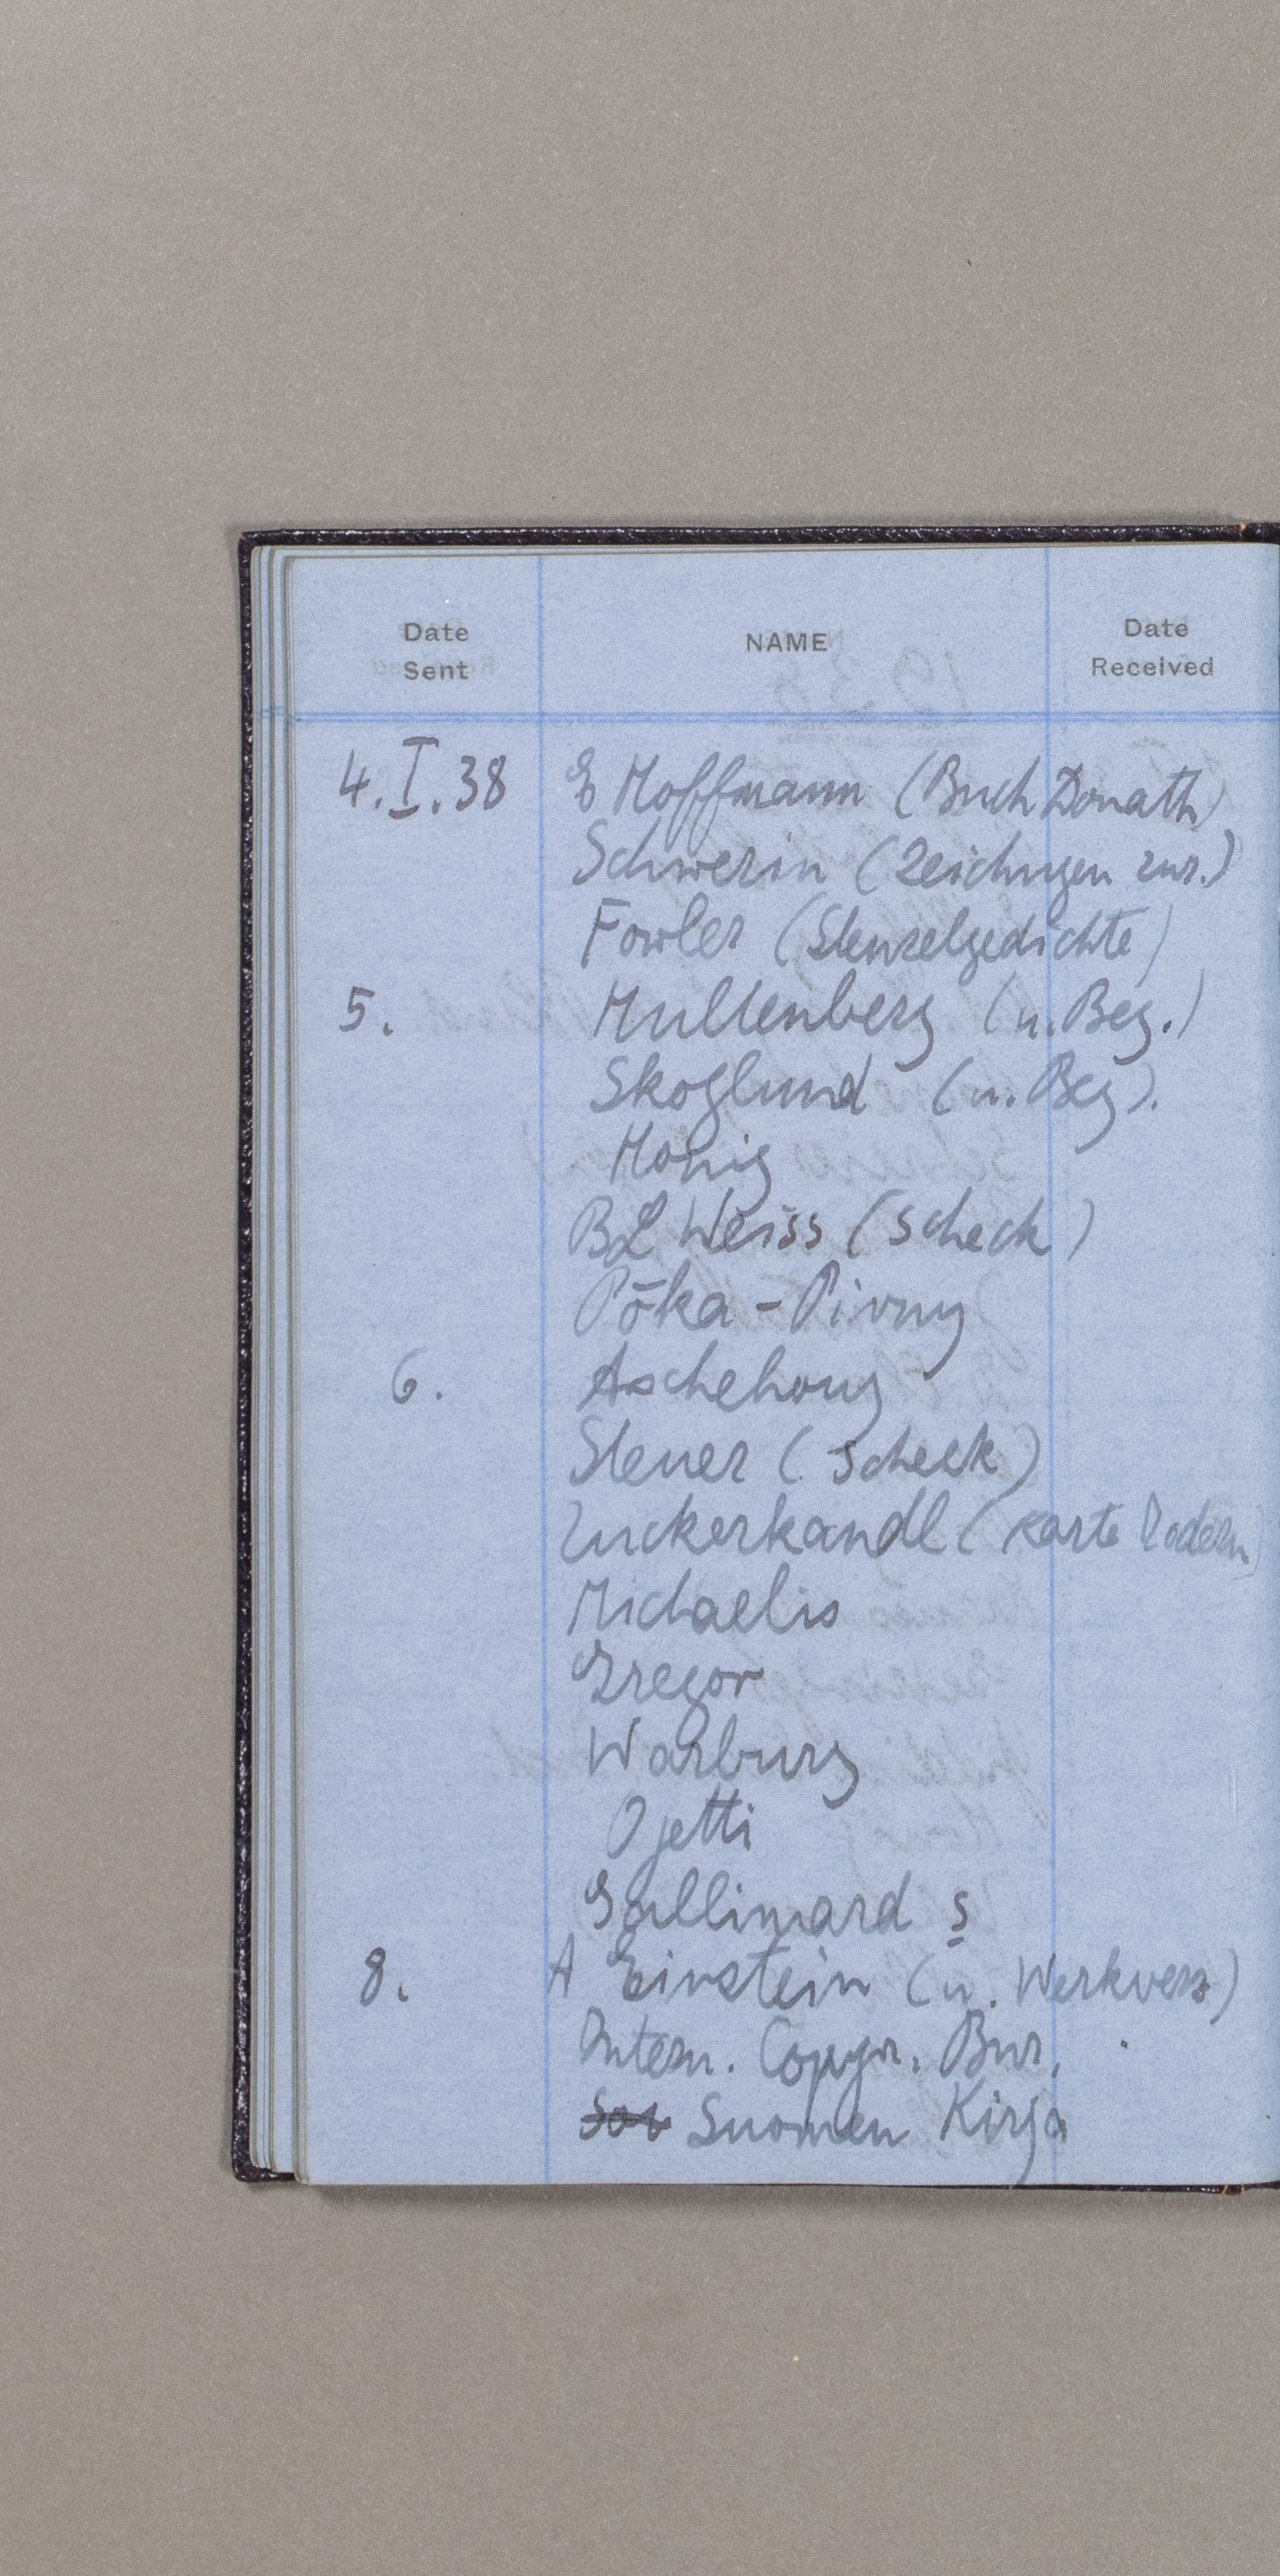 Date Sent NAME Date Received
4.I.38 E Hoffmann (Buch Donath)
Schwerin (Zeichngen zur.)
Fowler (Stenzelgedichte)
5. Hultenberg (u. Beg.)
Skoglund (u. Beg).
Honig
BL Weiss (Scheck)
Póka-Pivny
6. Aschehoug
Steuer (Scheck)
Zuckerkandl (Karte
Michaelis
Gregor
Warburg
Ojetti
Gallimard s
8. A Einstein (u. Werkverz)
Intern. Copyr. Bur.
Suomen Kirja